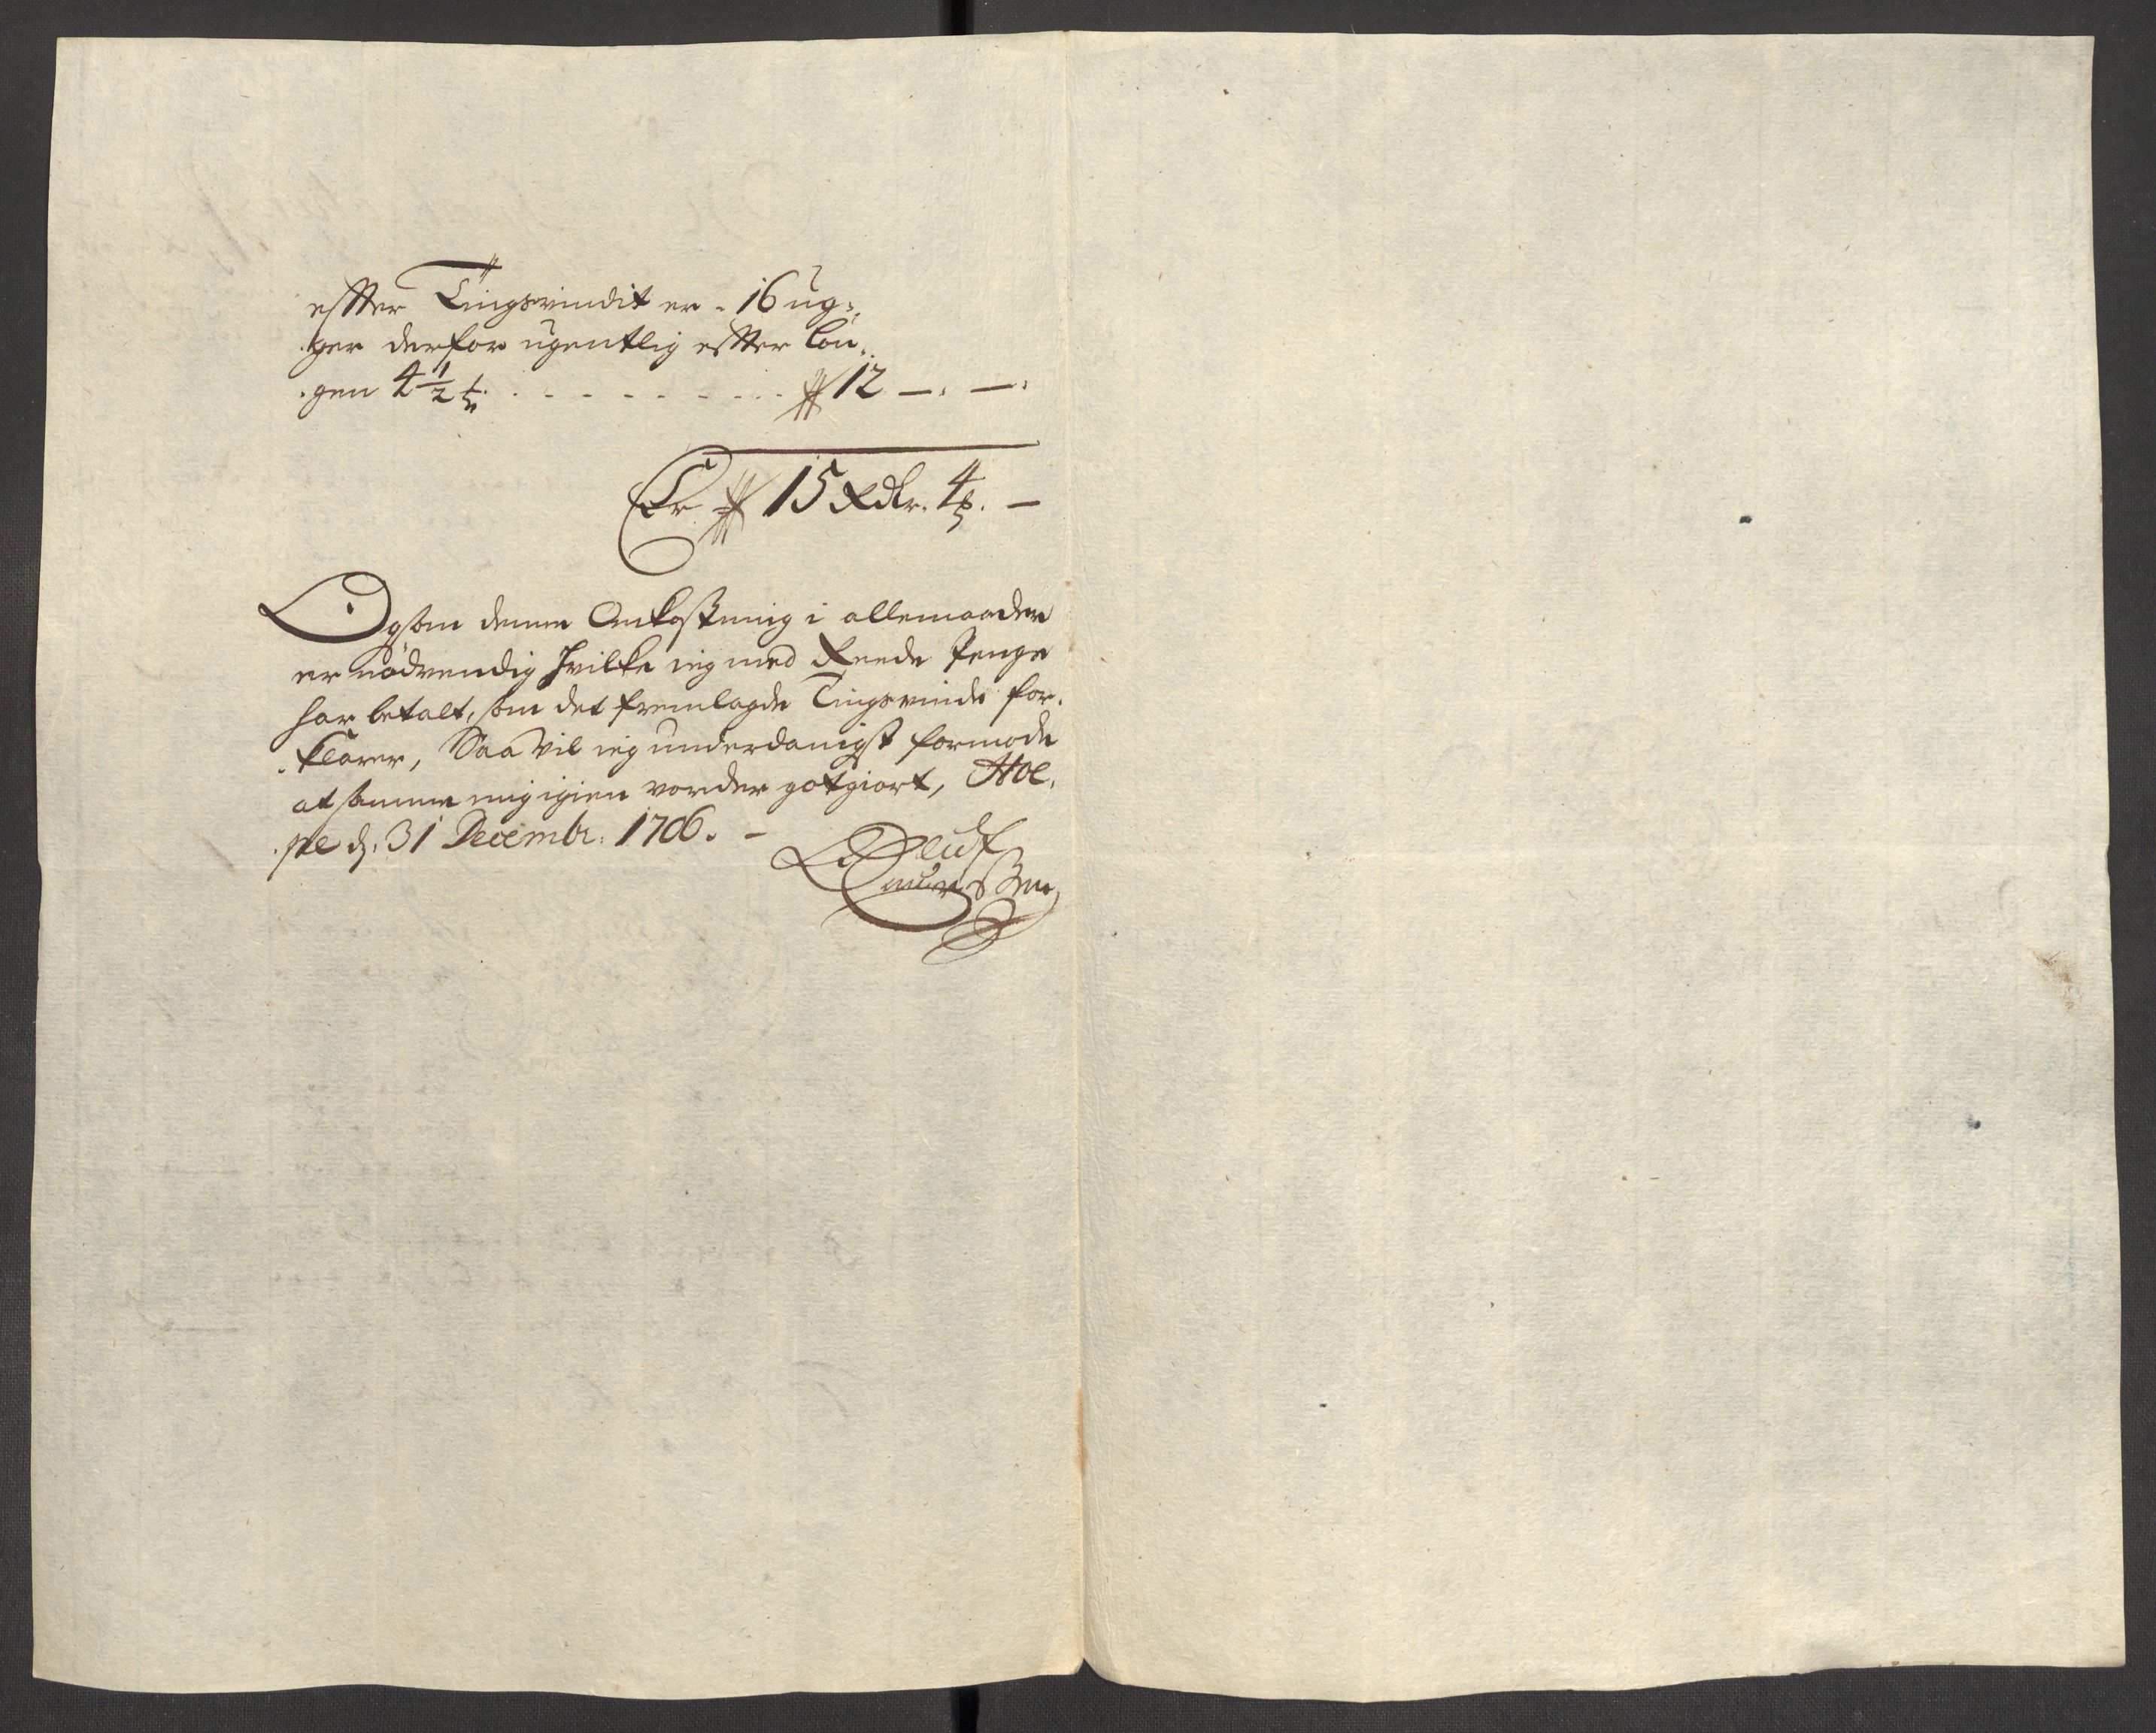 effter Tingsvindit er - 16 ug-
ger derfor ugentlig effter Lou-
gen 4 1/2 ß . - - - - - - - - 12 - . - .
Er 15 Rdlr. 4 ß. -
Og som denne Omkostning i allemaader
er nödvendig hvilke ieg med Reede Penge
har betalt, som det fremlagde Tingsvinde for-
klarer, Saa vil ieg underdanigst formode
at samme mig igien vorder gotgiort,
d. 31 Decembr: 1706. -
Oluf